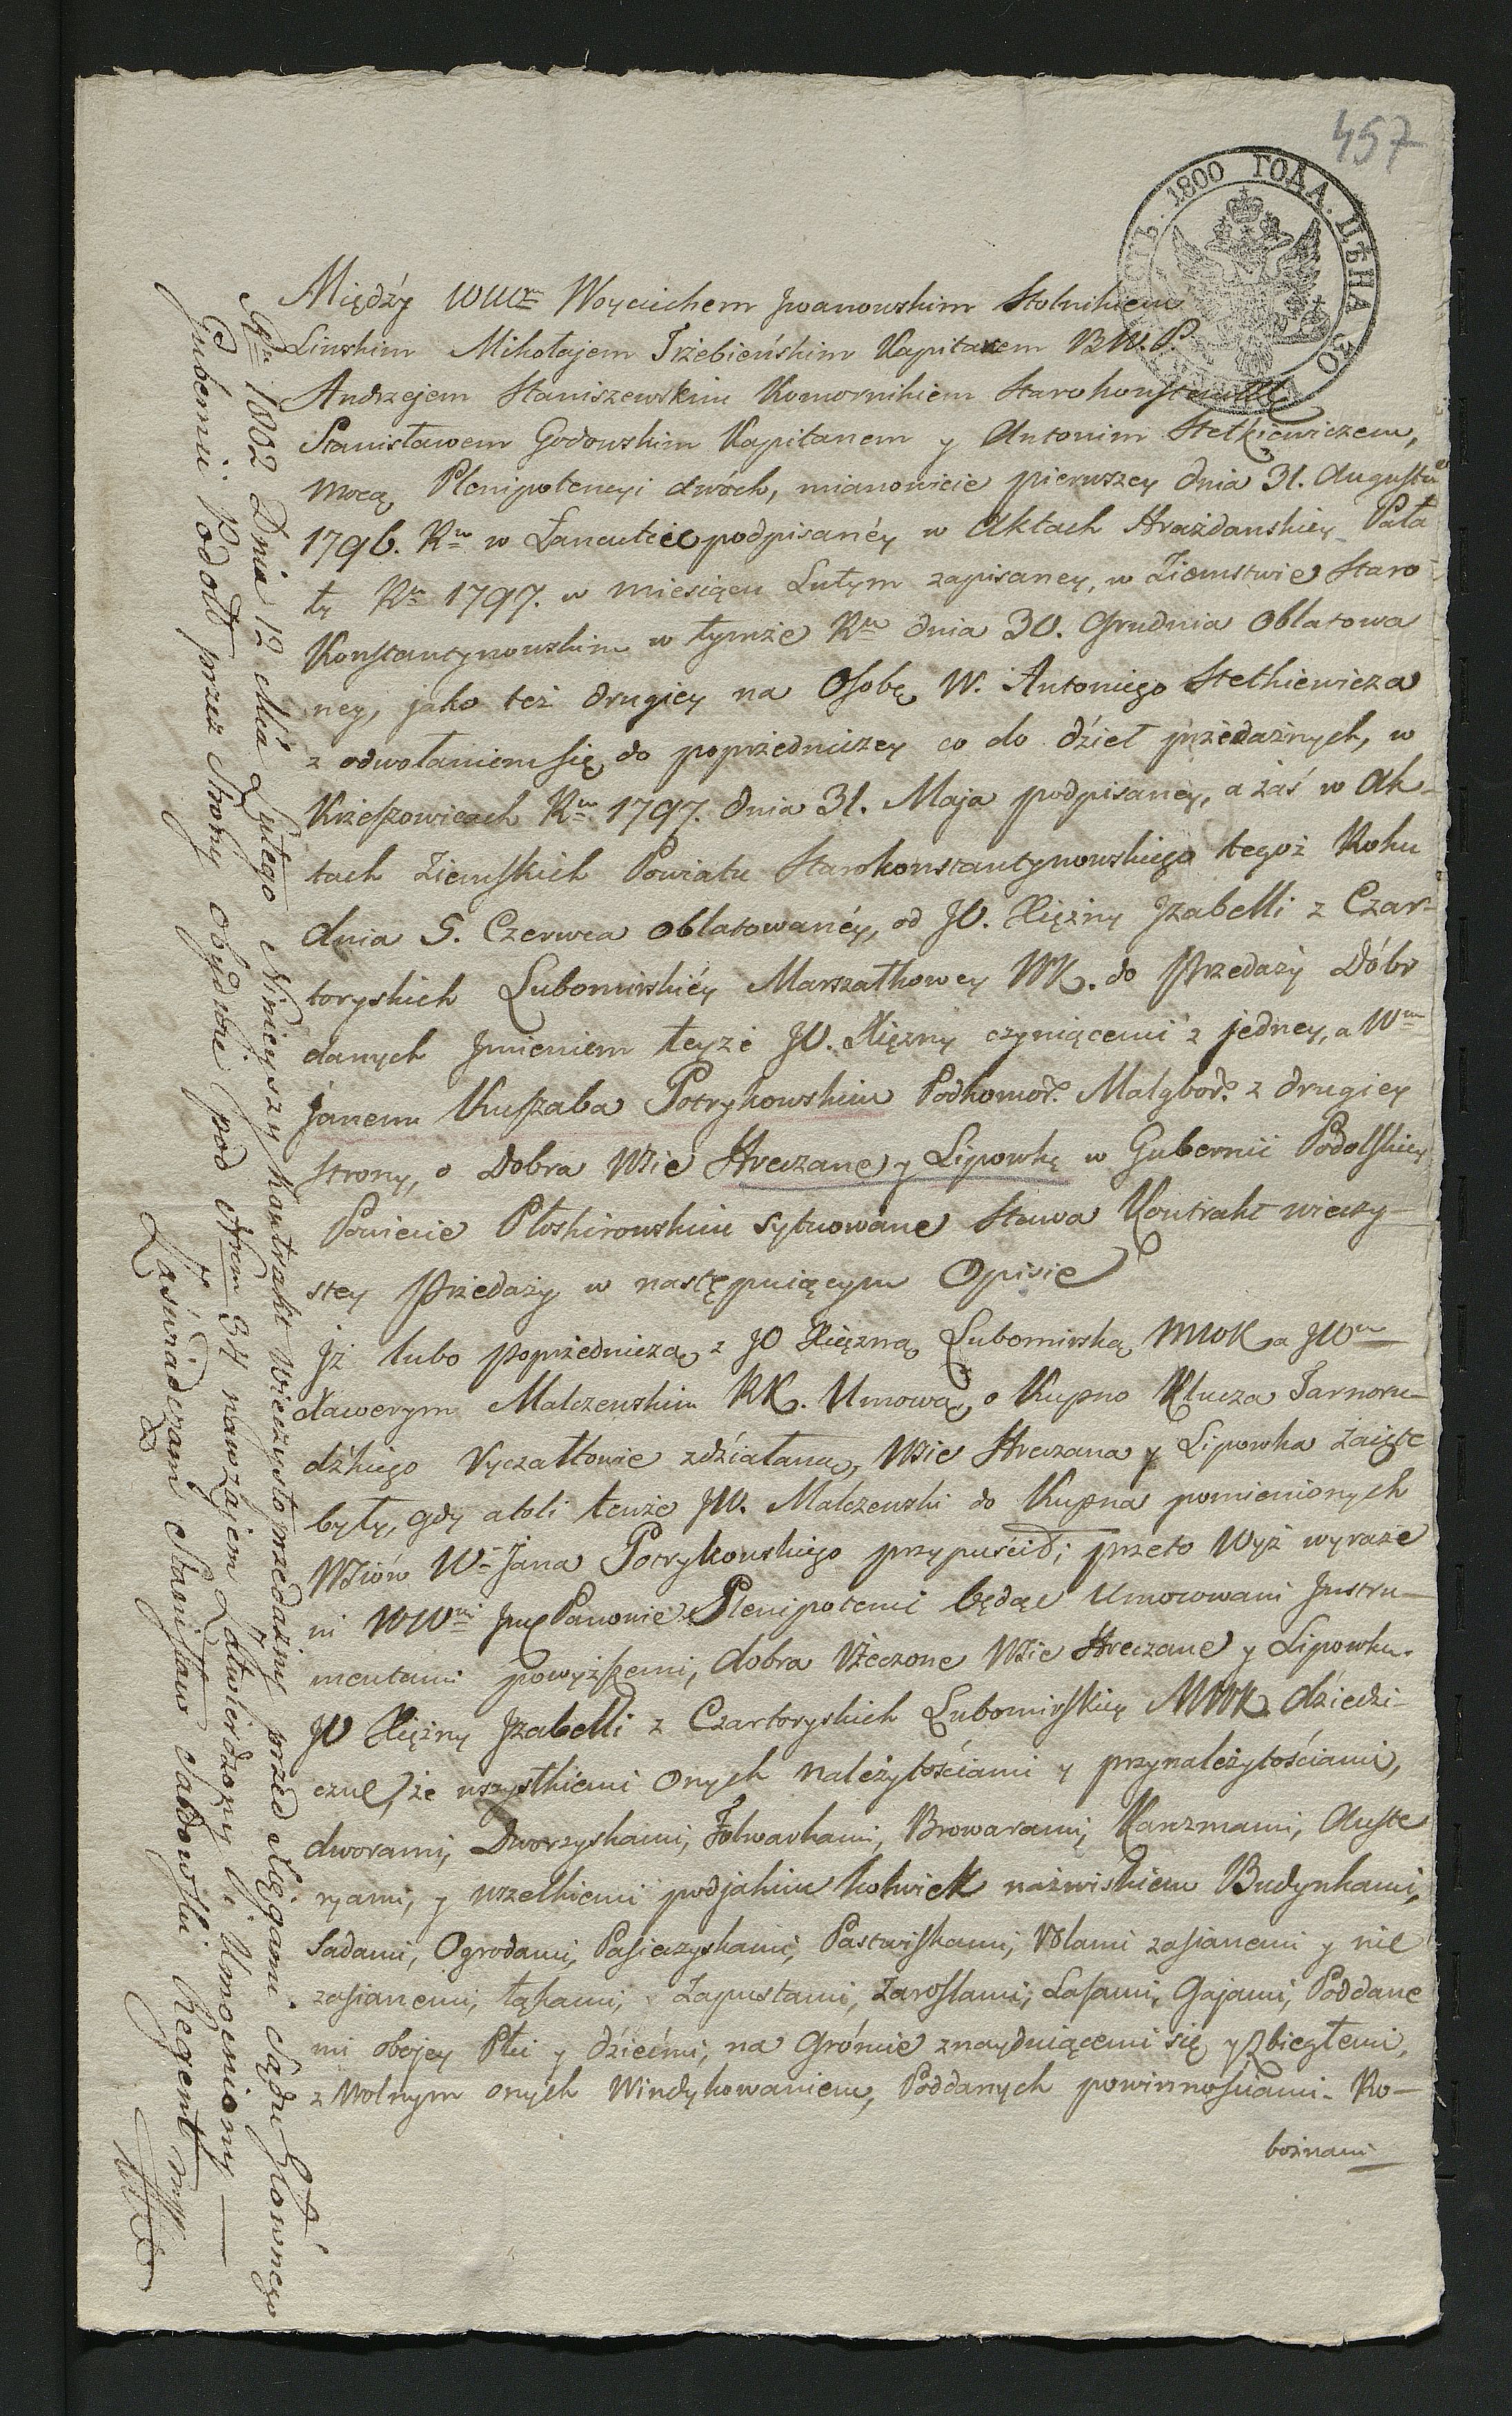 457
1800 ГОДА. ЦѢНА 30
Między WWmi Woyciechem Jwanowskim Stolnikiem
Linskim Mikołajem Trzebieńskim Kapitanem B.W.P.
Andrzejem Staniszewskim Komornikiem
Stanisławem Godowskim Kapitanem y Antonim Stetkiewiczem,
mocą Plenipotencyi dwóch, mianowicie pierwszey dnia 31. Augusta
1796. Ru w Łancucie podpisanéy w Aktach Hrażdanskiey Pała
ty Ru 1797. w miesiącu Lutym zapisaney, w Ziemstwie Staro
Konstantynowskim w tymże Ru dnia 30. Grudnia Oblatowa
ney, jako też drugiey na Osobę W. Antoniego Stetkiewicza
z odwołaniem się do poprzedniczey co do dzieł przedażnych, w
Krzeszowicach Ru 1797. dnia 31. Maja podpisaney, a zaś w Ak-
tach Ziemskich Powiatu Starokonstantynowskiego tegoż Roku
dnia 5. Czerwca oblatowanéy, od JO. Xiężny Jzabelli z Czar-
toryskich Lubomirskiéy Marszałkowey WK. do Przedaży Dóbr
danych Jmieniem teyże JO. Xiężny czyniącemi z jedney, a Wm
Janem Kuszaba Potrykowskim Podkomor. Malgbor. z drugiey
strony, o Dobra Wsie Hreczane y Lipowkę w Gubernii Podolskiey
Powiecie Płoskirowskim sytuowane Stawa Kontrakt wieczy-
stey Przedaży w następuiącym Opisie
Jż lubo poprzedniczą z JO Xiężną Lubomirską MWK a JWm
Xawerym Malczewskim KK. Umową, o Kupno Klucza Tarnoru-
dzkiego Ryczałtowie zdziałaną, Wsie Hreczana y Lipowka zaięte
były, gdy atoli tenże JW. Malczewski do Kupna pomienionych
Wsiów W Jana Potrykowskiego przypuścił; przeto Wyż wyraże
ni WWni Jmć Panowie Plenipotenci będąc Umocowani Jnstru-
mentami powyższemi, dobra Rzeczone Wsie Hreczane y Lipowku
JO Xiężny Jzabelli z Czartoryskich Lubomirskiey MWK dziedzi-
czne, ze wszystkiemi Onych należytościami y przynależytościami,
dworami, Dworzyskami, Folwarkami, Browarami, Karczmami, Auste
ryami, y wszelkiemi pod jakim kolwiek nazwiskiem Budynkami,
Sadami, Ogrodami, Pasieczyskami, Pastwiskami, Rolami zasianemi y nie
zasianemi, łąkami, Zapustami, Zaroslami, Lasami, Gajami, Poddane
mi obojey Płci y dziećmi, na Gróncie znayduiącemi się y zbiegłemi,
z Wolnym onych Windykowaniem, Poddanych powinnosciami. Ro-
bożnami
Ru 1802 Dnia 12 Mca Lutego Ninieyszy Kontrakt wieczysto przedażny przed Xięgami Sądu Głownego
Gubernii Podol: przez Strony obydwie pod Nrem 34 nawzajem Zatwierdzony y Umocniony
Zaświadczam Stanisław Sadowski Regent mp